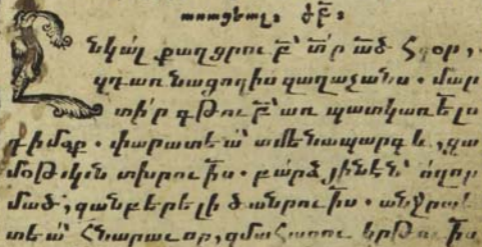 ժբ՟։
Ընկա՛լ քաղցրուբ՟՝ տ՟ր ա՟ծ հզօր,
զդառնացողիս զաղաչանս. մա
տի՛ր գթուբ՟՝ առ պատկառելս
դիմօք. փարատեա՛ ամենապարգև, զա
մօթական տխրուի՟ս. բարձ յինէն՝ ողոր
մած՛, զանբերելի ծանրուի՟ս. անջրպե
տեա՛ հնարաւոր, զմահացու կրթուի՟ս